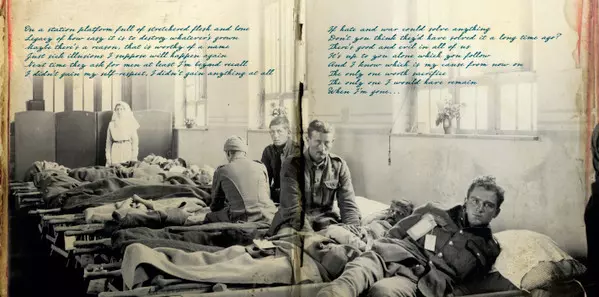 On a station platform full of stretchered flesh and bone
Legacy of how easy it is to destroy whatever's grown
Maybe there's a reason, that is worthy of a name
Just sick illusions I suppose will happen again
Next time they ask for men at least I'm beyond recall
I didn't gain my self-respect, I didn't gain anything at all
If hate and war could solve anything
Don't you think they'd have solved it a long time ago?
There's good and evil in all of us
It's up to you alone which you follow
And I know which is my cause from now on
The only one worth sacrifice
The only one I would have remain
When I'm gone...